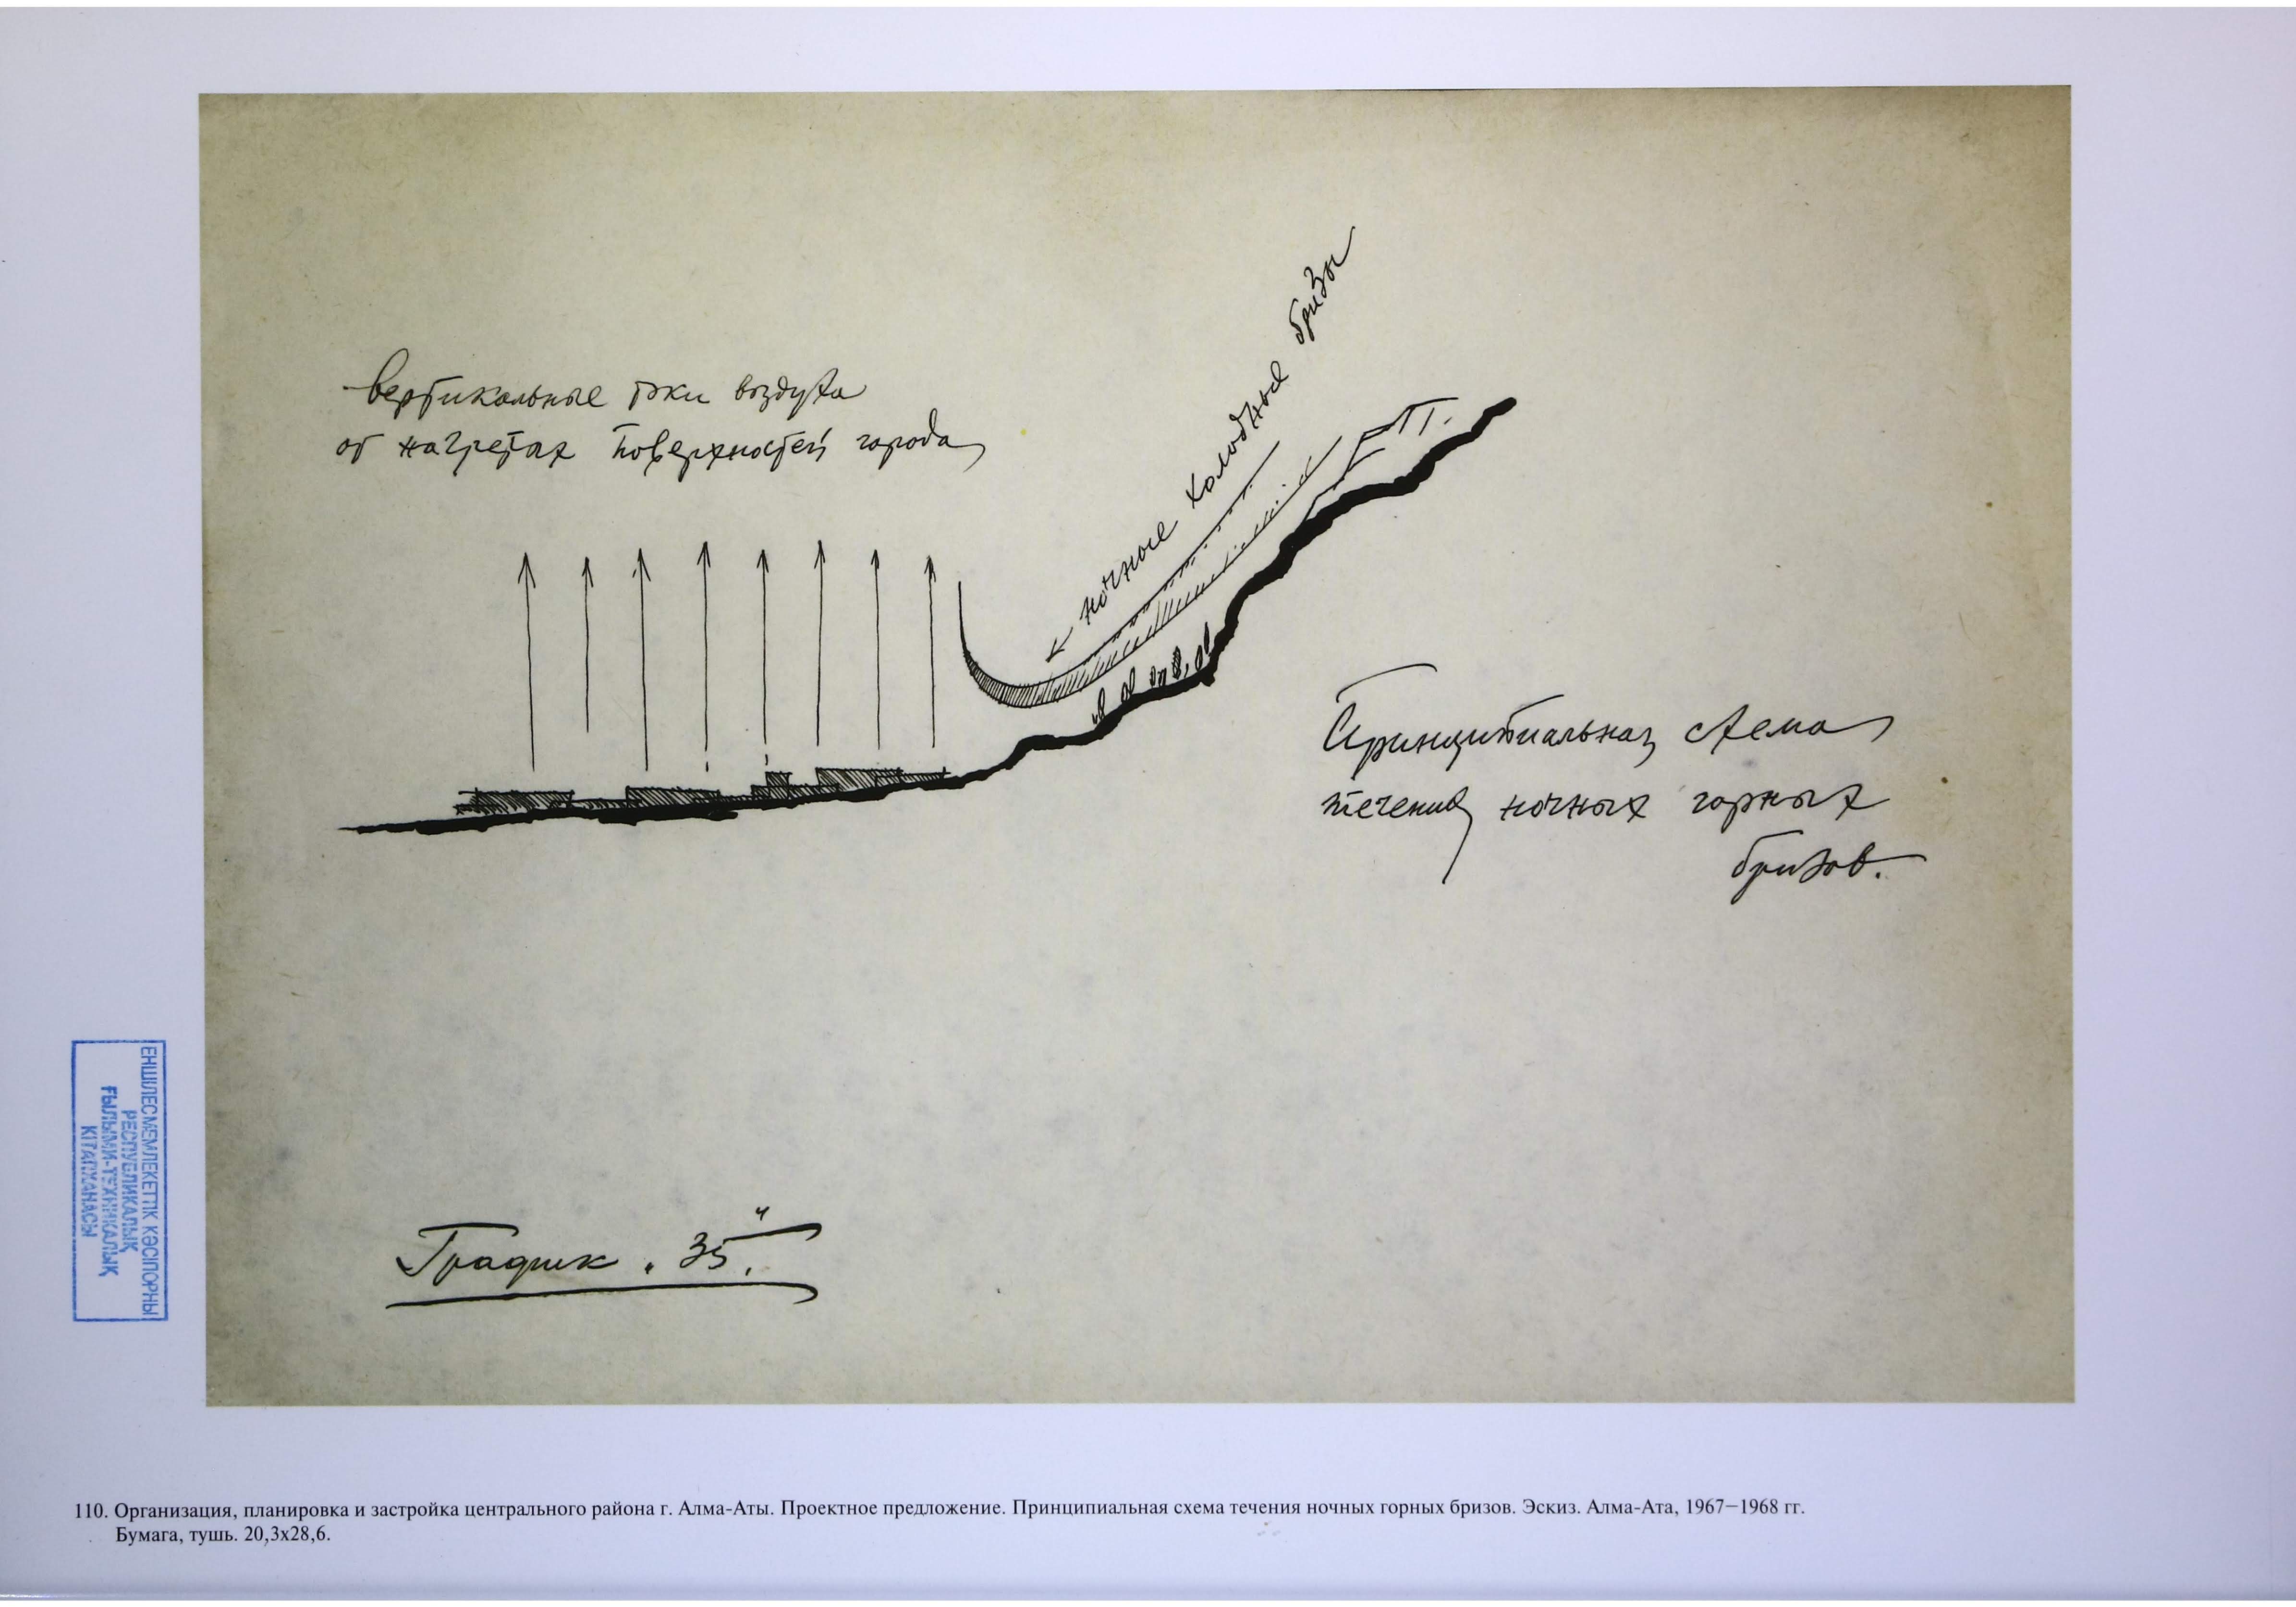 вертикальные токи воздуха
от нагретых поверхностей города
ночные холодные бризы
Принципиальная схема
течения ночных горных
бризов.
График „35“.
ЕНШІЛЕСМЕМЛЕКЕТТІК КӘСІПОРНЫ
РЕСПУБЛИКАЛЫҚ
ҒЫЛЫМИ-ТЕХНИКАЛЫҚ
КІТАПХАНАСЫ
110. Организация, планировка и застройка центрального района г. Алма-Аты. Проектное предложение. Принципиальная схема течения ночных горных бризов. Эскиз. Алма-Ата, 1967–1968 гг.
Бумага, тушь. 20,3х28,6.